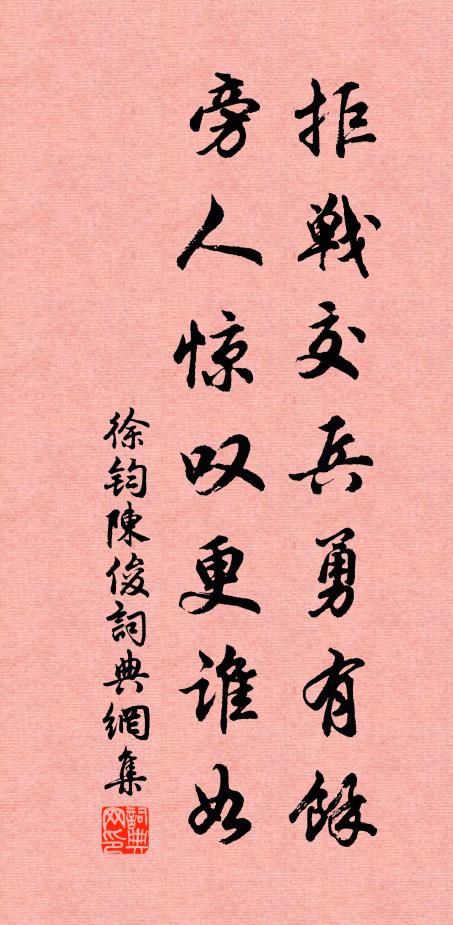 拒戦交兵勇有餘
旁人惊叹更谁如
徐钧陳俊詞典網集
詞典网印